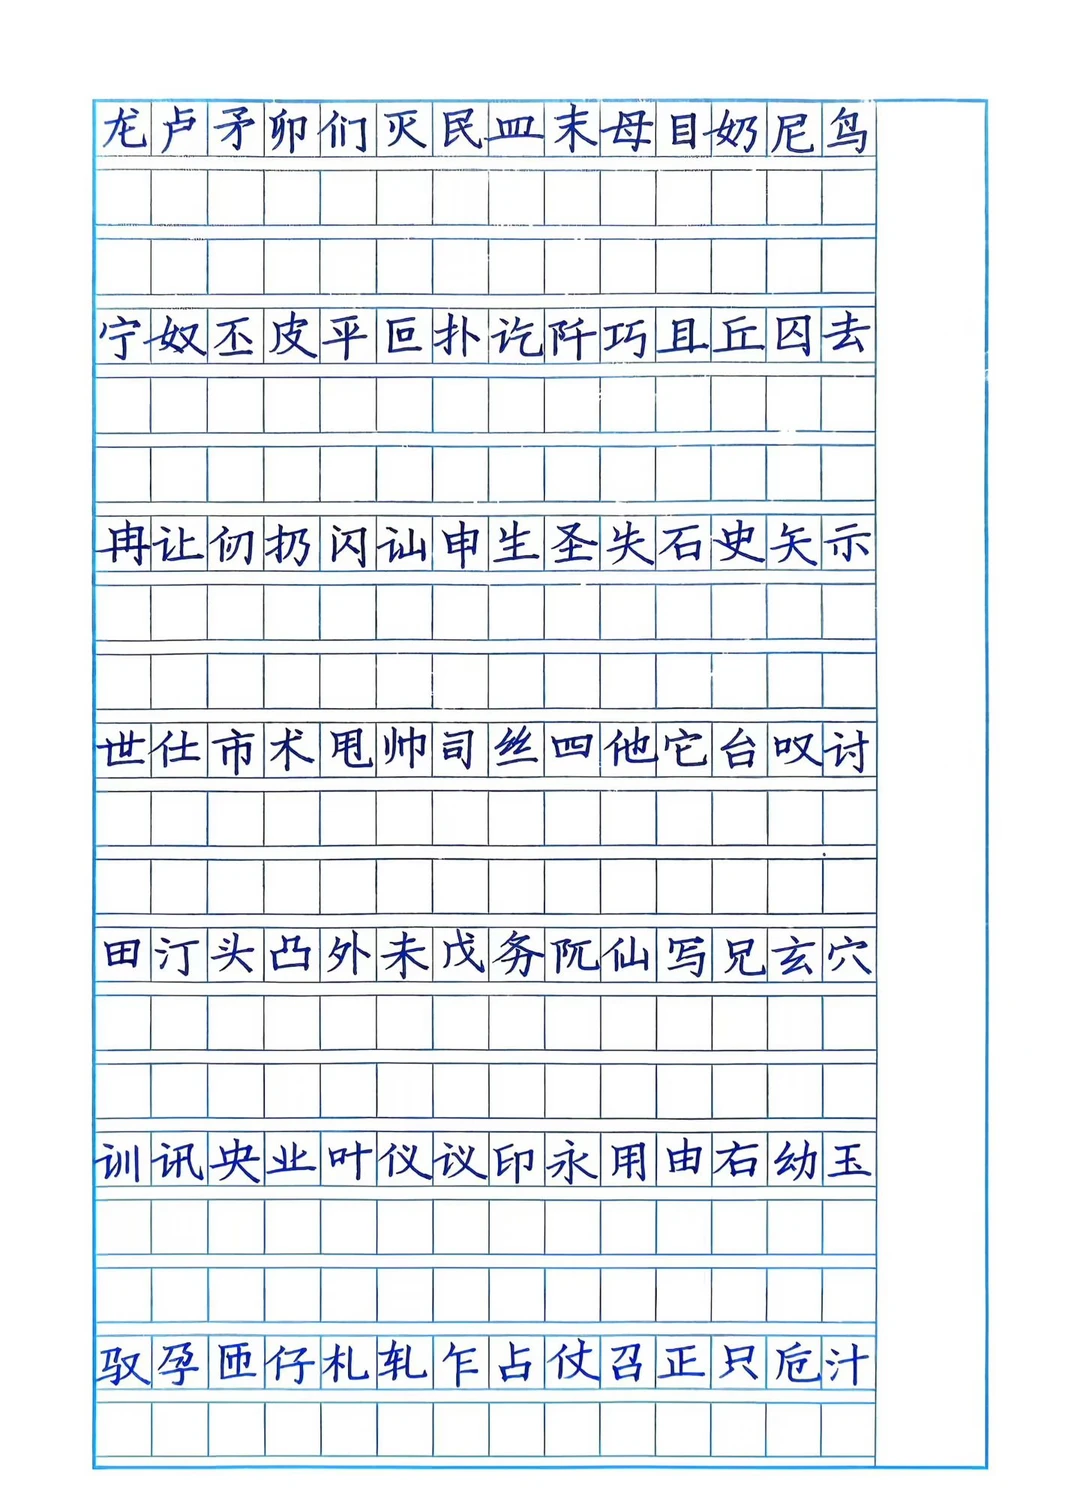 龙卢矛卯们灭民皿末母目奶尼鸟
宁奴丕皮平叵扑讫阡巧且丘囚去
冉让仞扔闪讪申生圣失石史矢示
世仕市术甩帅司丝四他它台叹讨
田汀头凸外未戊务阢仙写兄玄穴
训讯央业叶仪议印永用由右幼玉
驭孕匝仔札轧乍占仗召正只卮汁